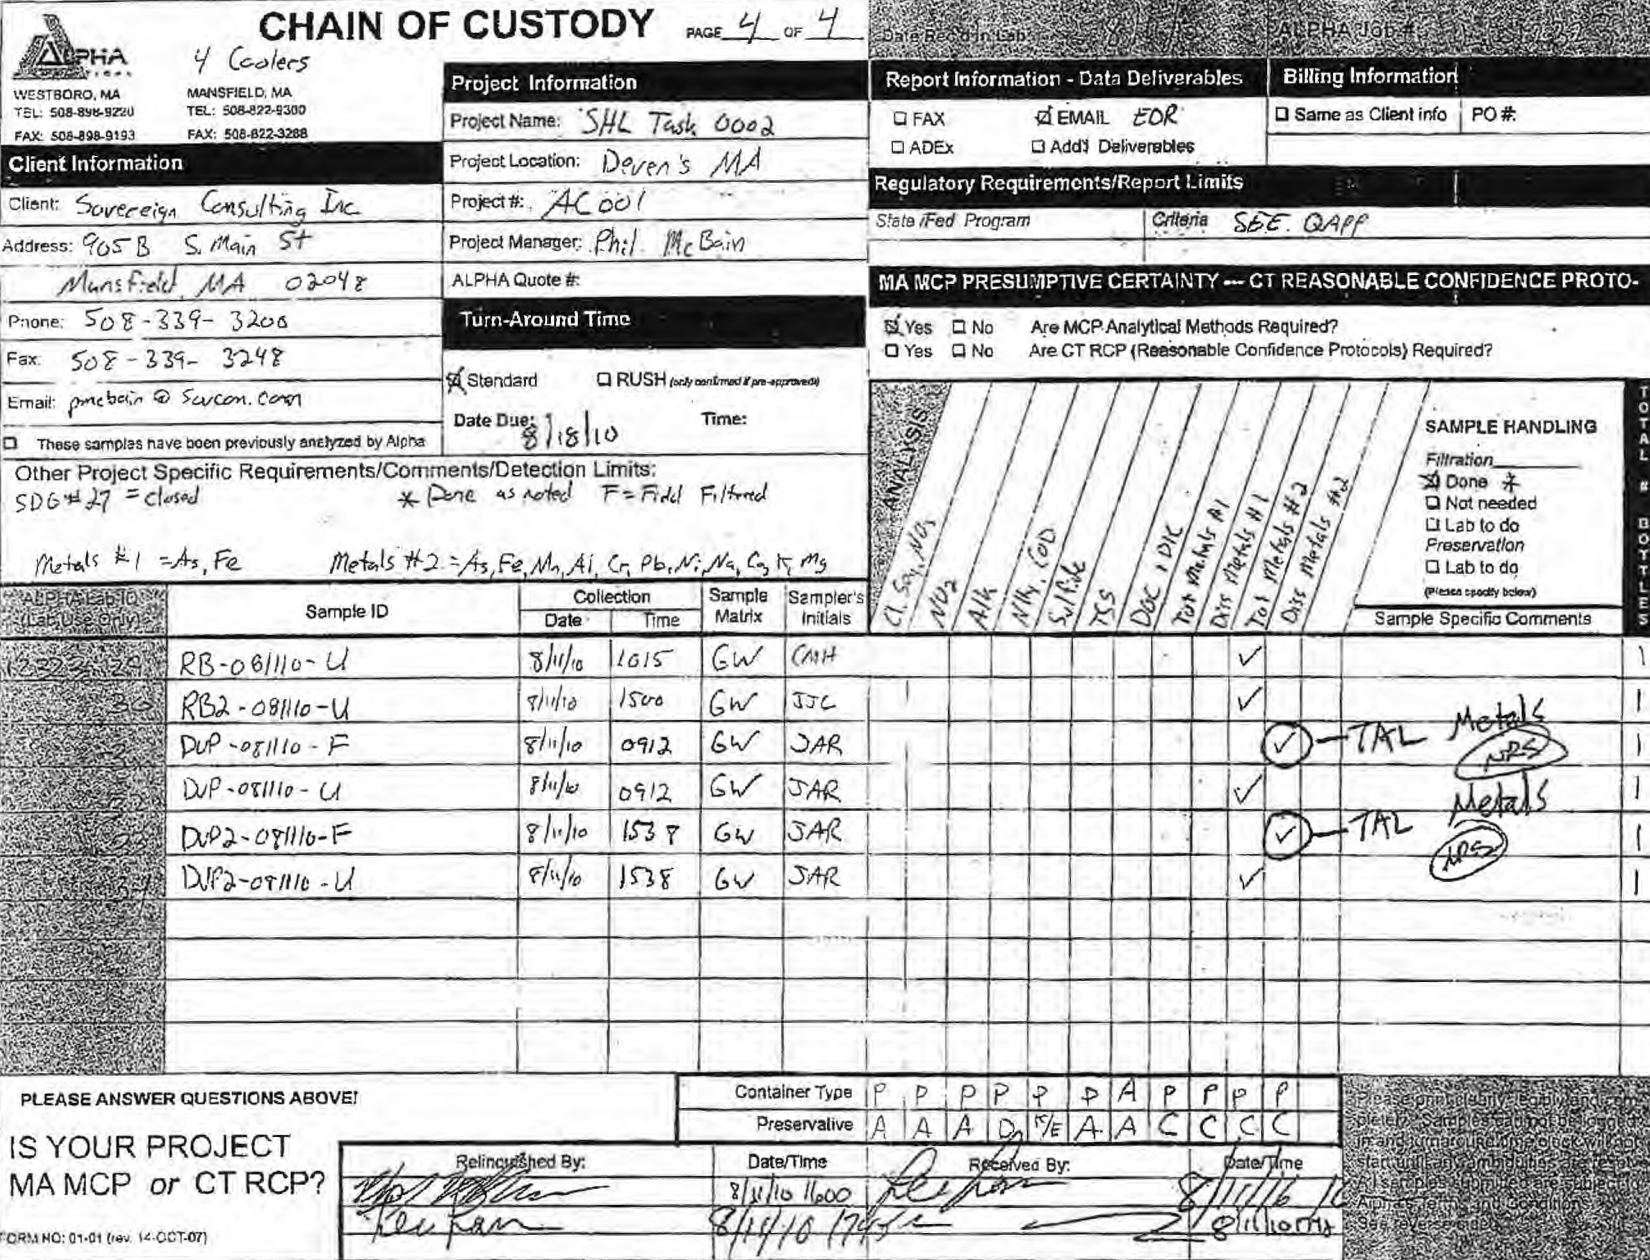 CHAIN OF CUSTODY PAGE 4 OF 4
Date Rec'd in Lab:
ALPHA Job #:
ALPHA
4 Coolers
WESTBORO, MA
TEL: 508-898-9220
FAX: 508-898-9193
MANSFIELD, MA
TEL: 508-822-9300
FAX: 508-822-3288
Client Information
Client: Sovereign Consulting Inc
Address: 905B S. Main St
Mansfield, MA 02048
Phone: 508-339-3200
Fax: 508-339-3248
Email: pmcbain @ Sovcon.com
These samples have been previously analyzed by Alpha
Project Information
Project Name: SHL Task 0002
Project Location: Deven's MA
Project #: AC001
Project Manager: Phil McBain
ALPHA Quote #:
Turn-Around Time
Standard RUSH (only confirmed if pre-approved)
Date Due: 8/18/10 Time:
Report Information - Data Deliverables
FAX EMAIL EOR
ADEx Add'l Deliverables
Billing Information
Same as Client info PO #:
Regulatory Requirements/Report Limits
State /Fed Program Criteria SEE QAPP
MA MCP PRESUMPTIVE CERTAINTY --- CT REASONABLE CONFIDENCE PROTO-
Yes No Are MCP Analytical Methods Required?
Yes No Are CT RCP (Reasonable Confidence Protocols) Required?
Other Project Specific Requirements/Comments/Detection Limits:
SDG# 27 = closed * Done as noted F = Field Filtered
Metals #1 = As, Fe Metals #2 = As, Fe, Mn, Al, Cr, Pb, Ni, Na, Ca, K, Mg
ANALYSIS
Cl, SO4, NO3
NO2
Alk
NH3, COD
Sulfide
TSS
DOC, DIC
Tot Metals #1
Diss Metals #1
Tot Metals #2
Diss Metals #2
SAMPLE HANDLING
Filtration
Done *
Not needed
Lab to do
Preservation
Lab to do
(Please specify below)
TOTAL # BOTTLES
ALPHA Lab ID
(Lab Use Only)
Sample ID
Collection
Date Time
Sample Matrix
Sampler's Initials
Sample Specific Comments
RB-081110-U 8/11/10 1015 GW CMH ✓ 1
30 RB2-081110-U 8/11/10 1500 GW JJC ✓ 1
DUP-081110-F 8/11/10 0912 GW JAR ✓ - TAL Metals 1
DUP-081110-U 8/11/10 0912 GW JAR ✓ 1
DUP2-081110-F 8/11/10 1538 GW JAR ✓ - TAL Metals 1
34 DUP2-081110-U 8/11/10 1538 GW JAR ✓ 1
PLEASE ANSWER QUESTIONS ABOVE!
IS YOUR PROJECT
MA MCP or CT RCP?
FORM NO: 01-01 (rev. 14-OCT-07)
Container Type P P P P P P A P P P P
Preservative A A A D A A C C C C
Relinquished By: Date/Time Received By: Date/Time
8/11/10 1600
8/11/10 1745
Please print clearly, legibly and completely. Samples can not be logged in and turnaround time clock will not start until any ambiguities are resolved. All samples submitted are subject to Alpha's Terms and Conditions.
See reverse side.